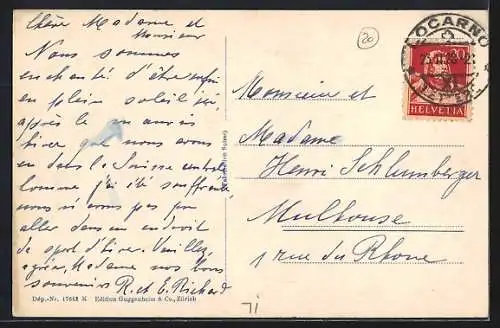 Chère Madame et
Monsieur
Nous sommes
enchanté d'être enfin
en plein soleil ici,
après le
hiver que nous avons
eu dans la Suisse centrale
Comme j'ai été souffrant,
nous n'avons pas pu
aller dans un endroit
de sport d'hiver. Veuillez
agréer, Madame nos bons
souvenirs R. et E. Richard
Dép.-Nr. 17642 K Edition Guggenheim & Co., Zürich
LOCARNO
20
HELVETIA
20
Monsieur et
Madame
Henri Schlumberger
Mulhouse
1 rue du Rhône
71